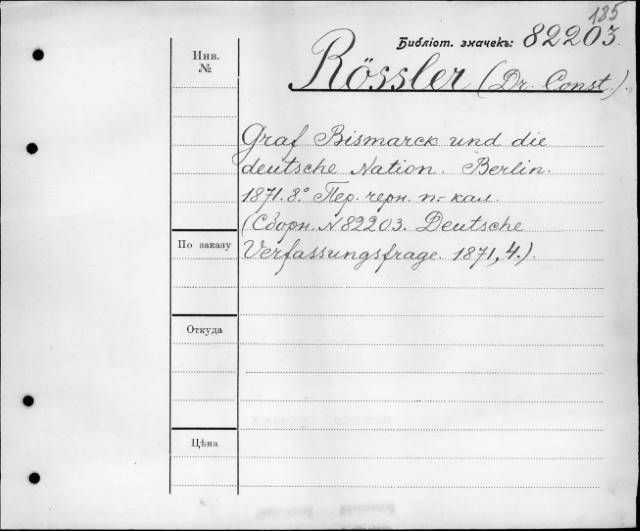 135
Библіот. значекъ: 82203.
Инв.
№
Rössler (Dr. Const.).
Graf Bismarck und die
deutsche Nation. Berlin.
1871. 8.° Пер. черн. п.-кал.
(Сборн. № 82203. Deutsche
Verfassungsfrage. 1871, 4.).
По заказу
Откуда
Цѣна